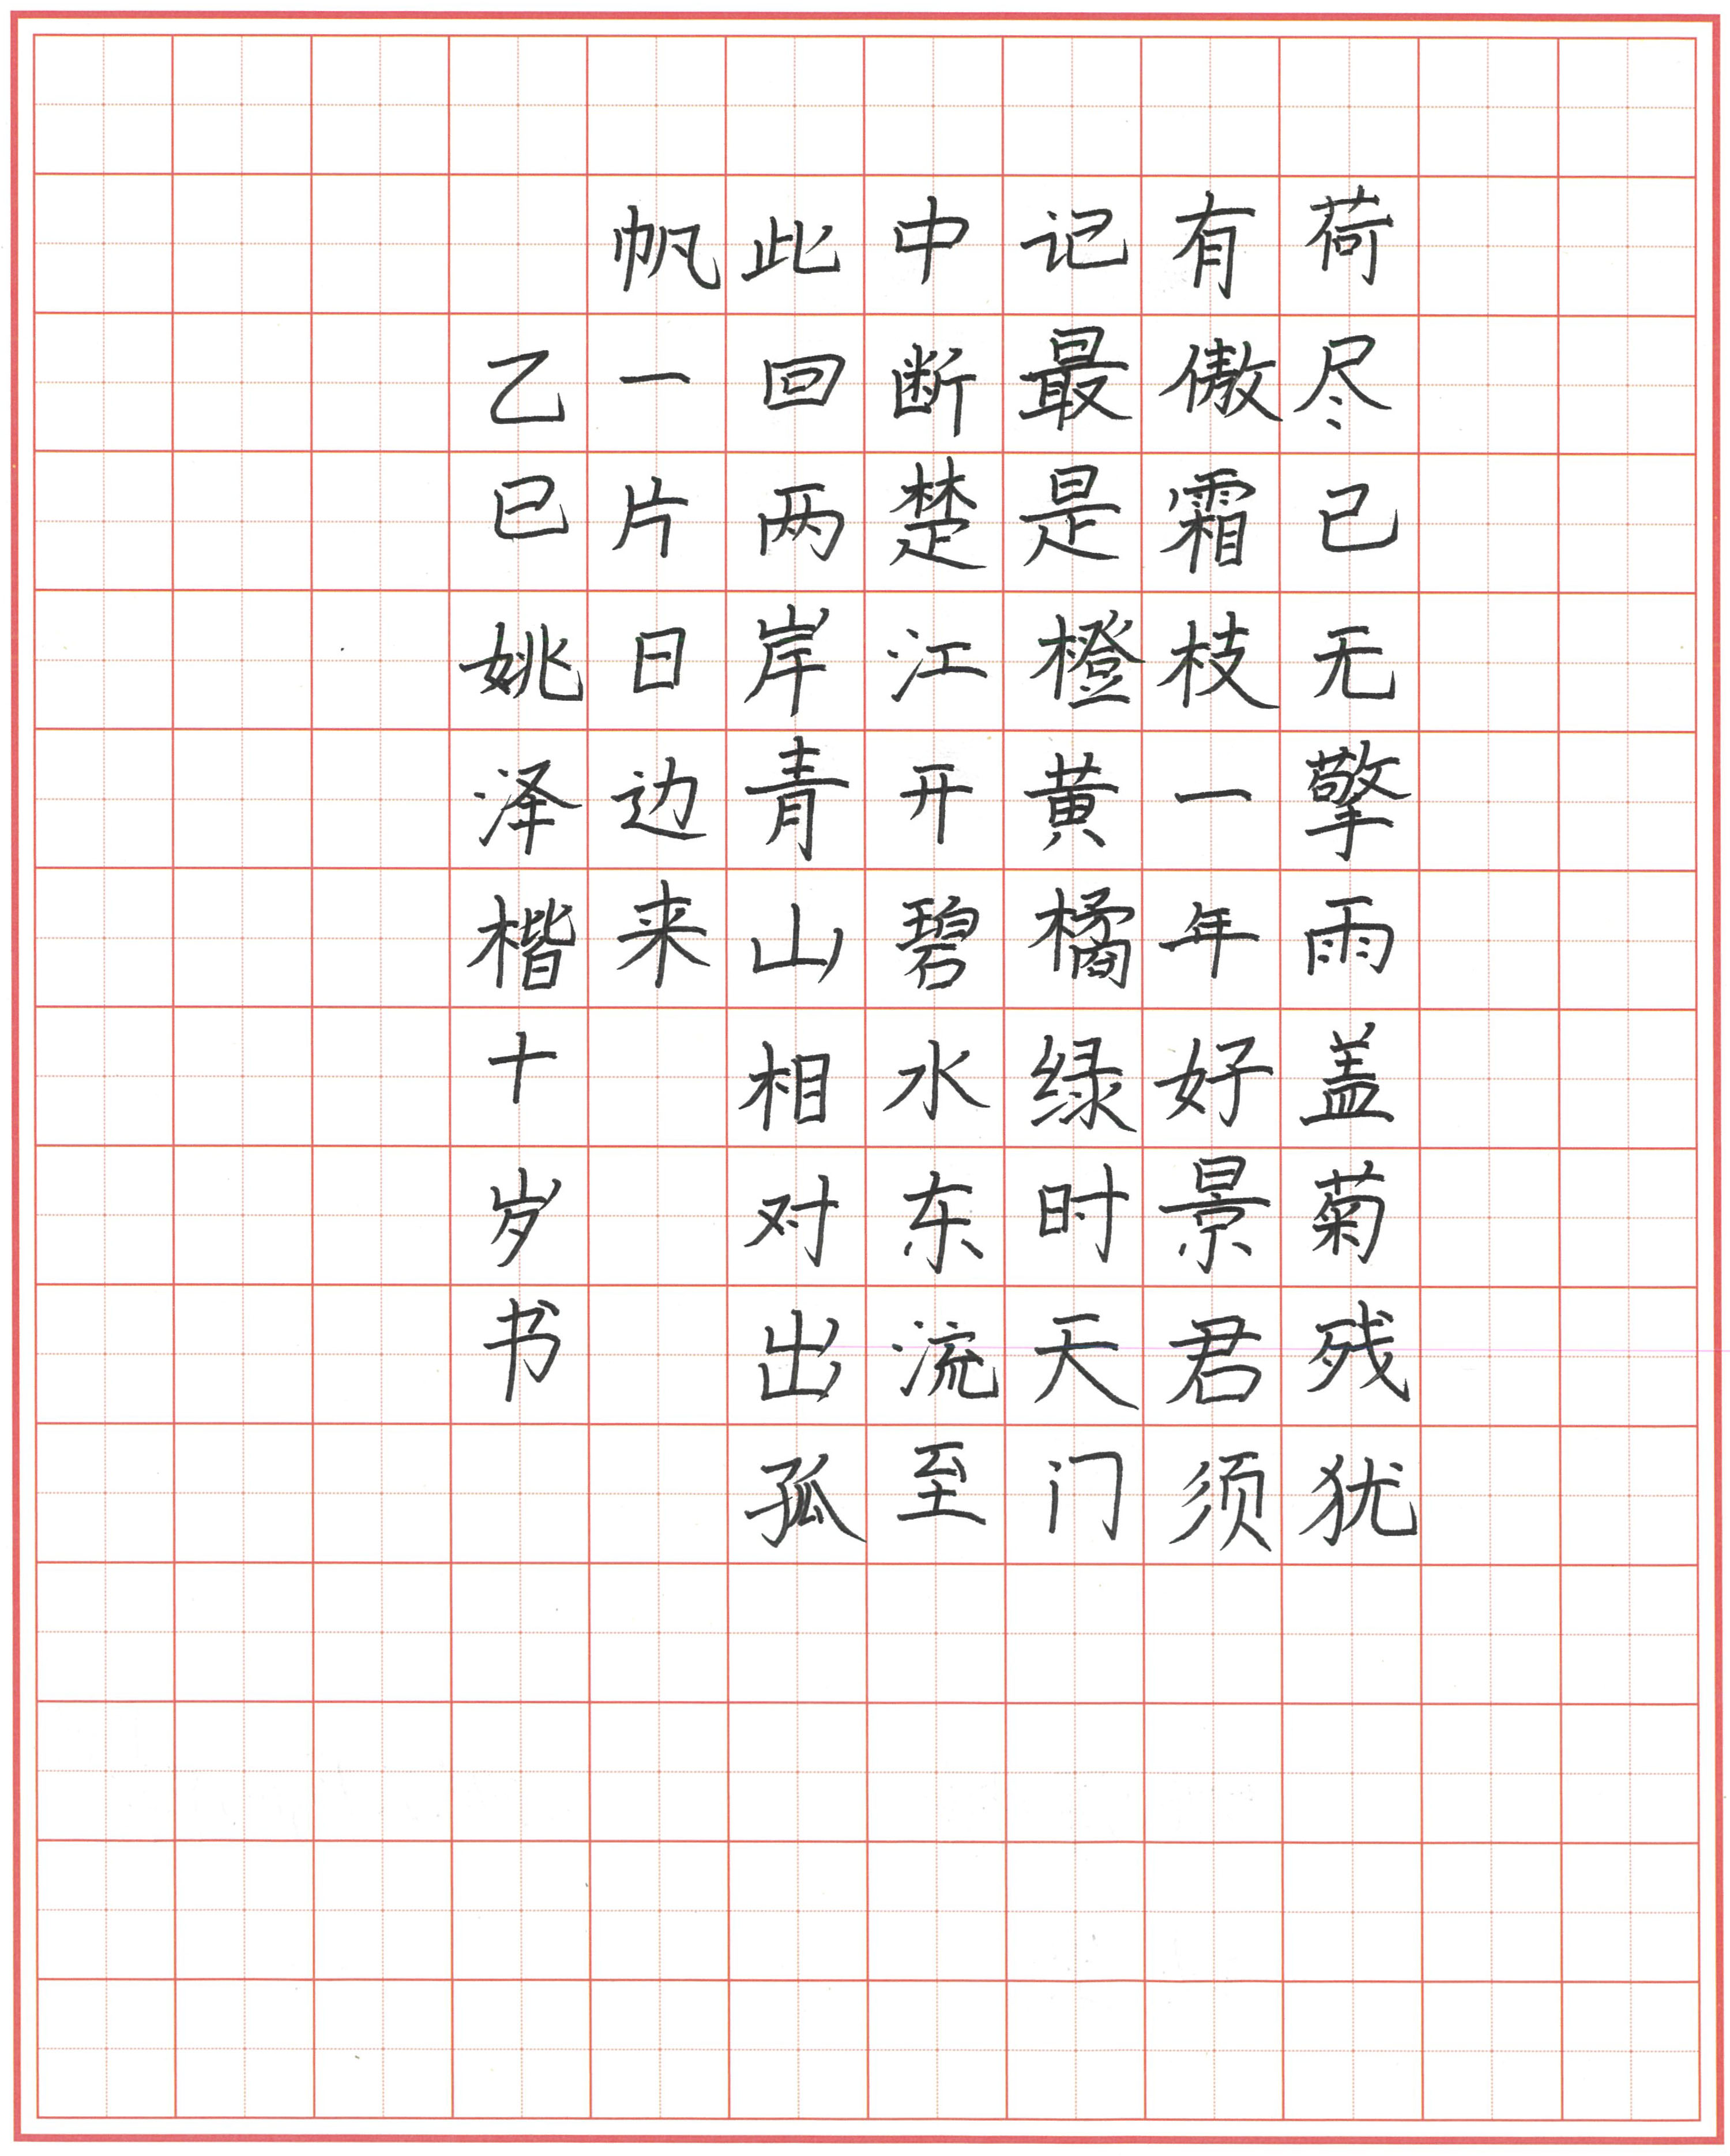 荷尽已无擎雨盖菊残犹
有傲霜枝一年好景君须
记最是橙黄橘绿时天门
中断楚江开碧水东流至
此回两岸青山相对出孤
帆一片日边来
乙巳姚泽楷十岁书